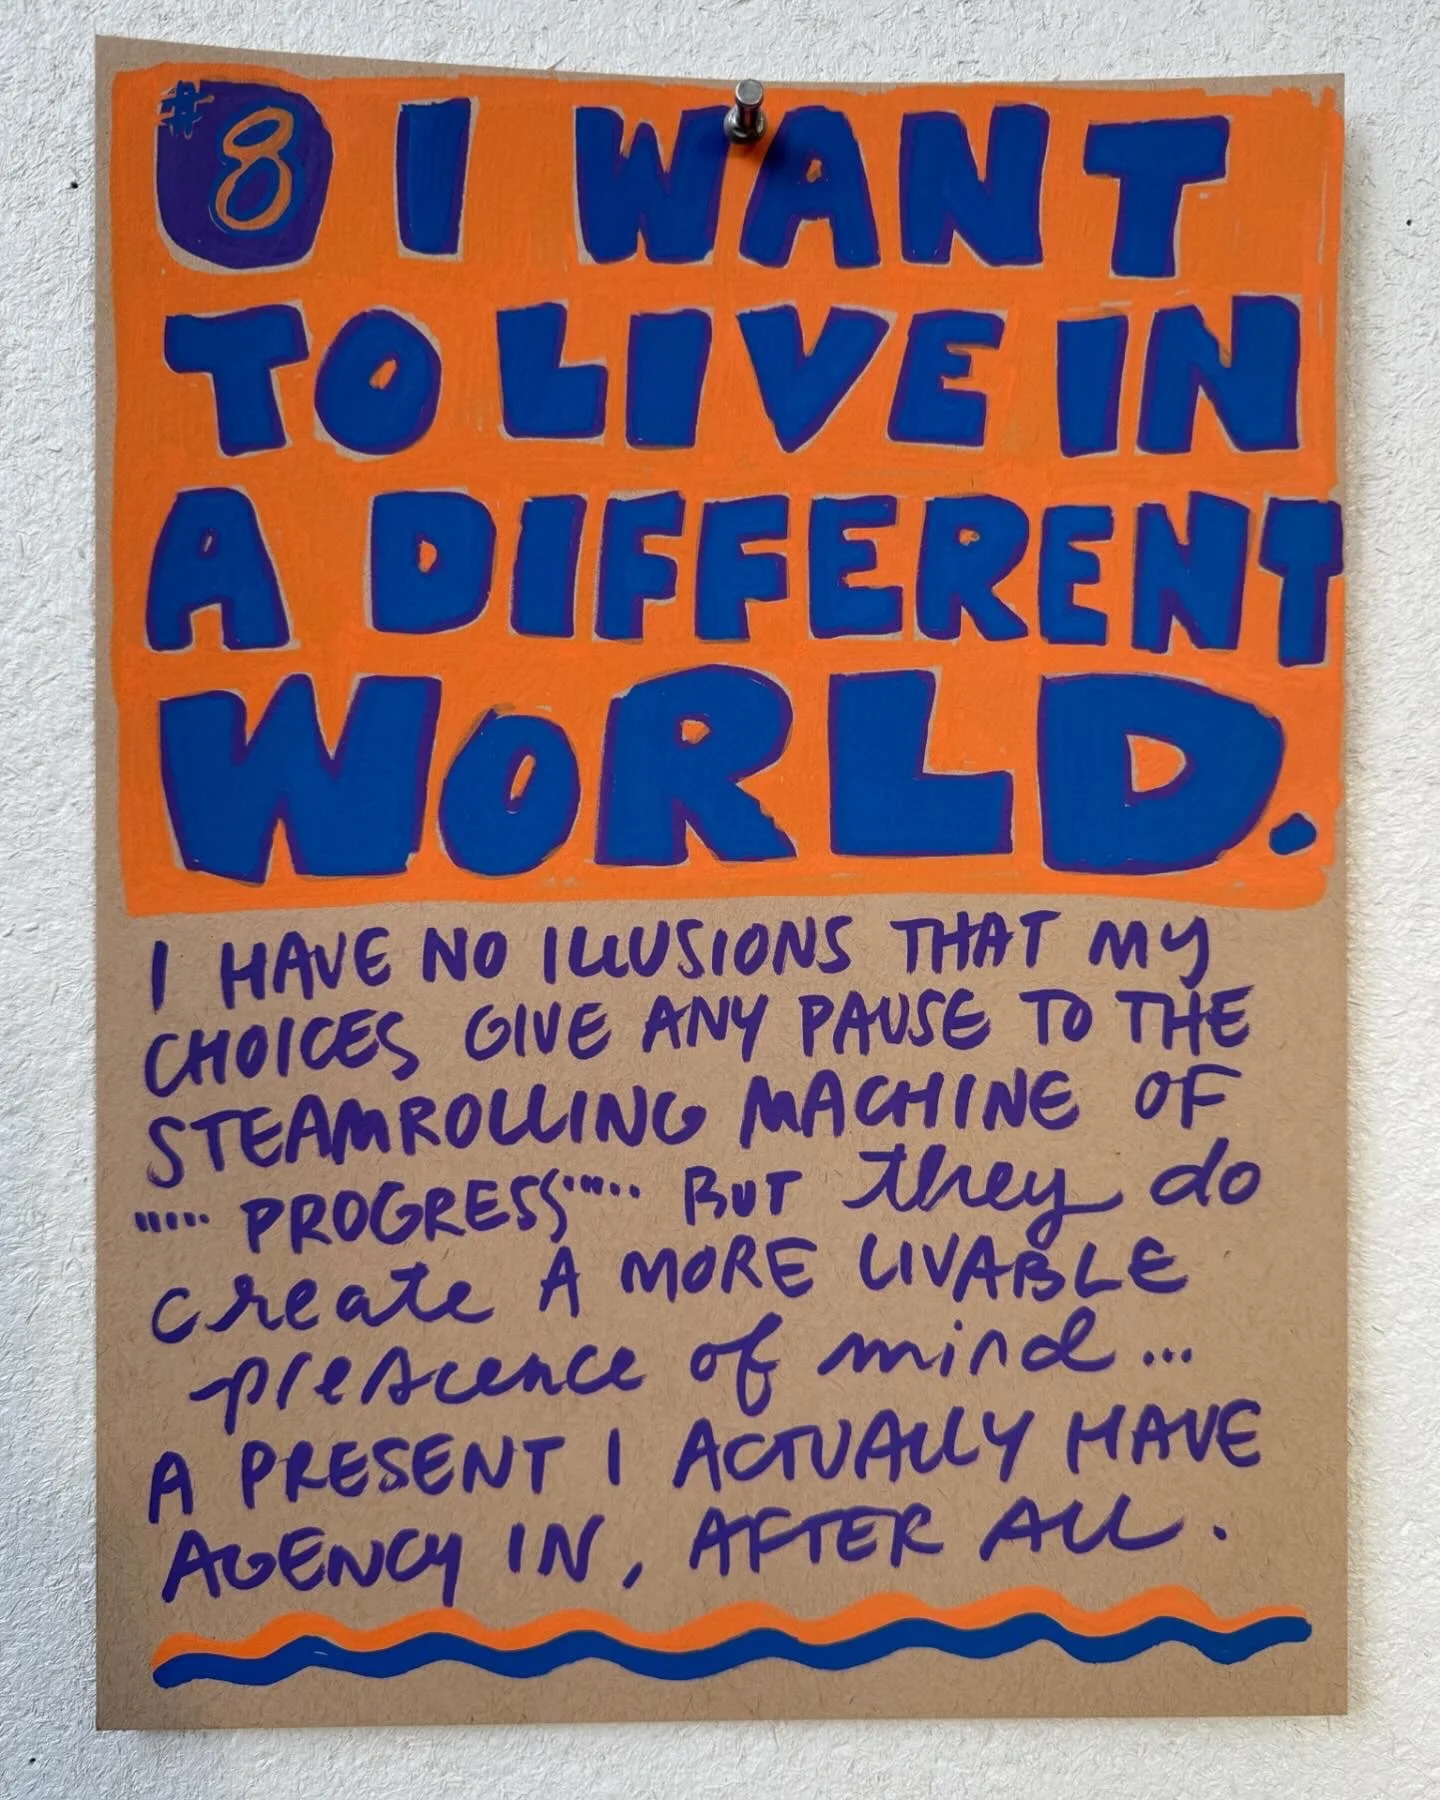 #8 I WANT
TO LIVE IN
A DIFFERENT
WORLD.
I HAVE NO ILLUSIONS THAT MY
CHOICES GIVE ANY PAUSE TO THE
STEAMROLLING MACHINE OF
""""" PROGRESS""""" BUT they do
create A MORE LIVABLE
prescence of mind...
A PRESENT I ACTUALLY HAVE
AGENCY IN, AFTER ALL.